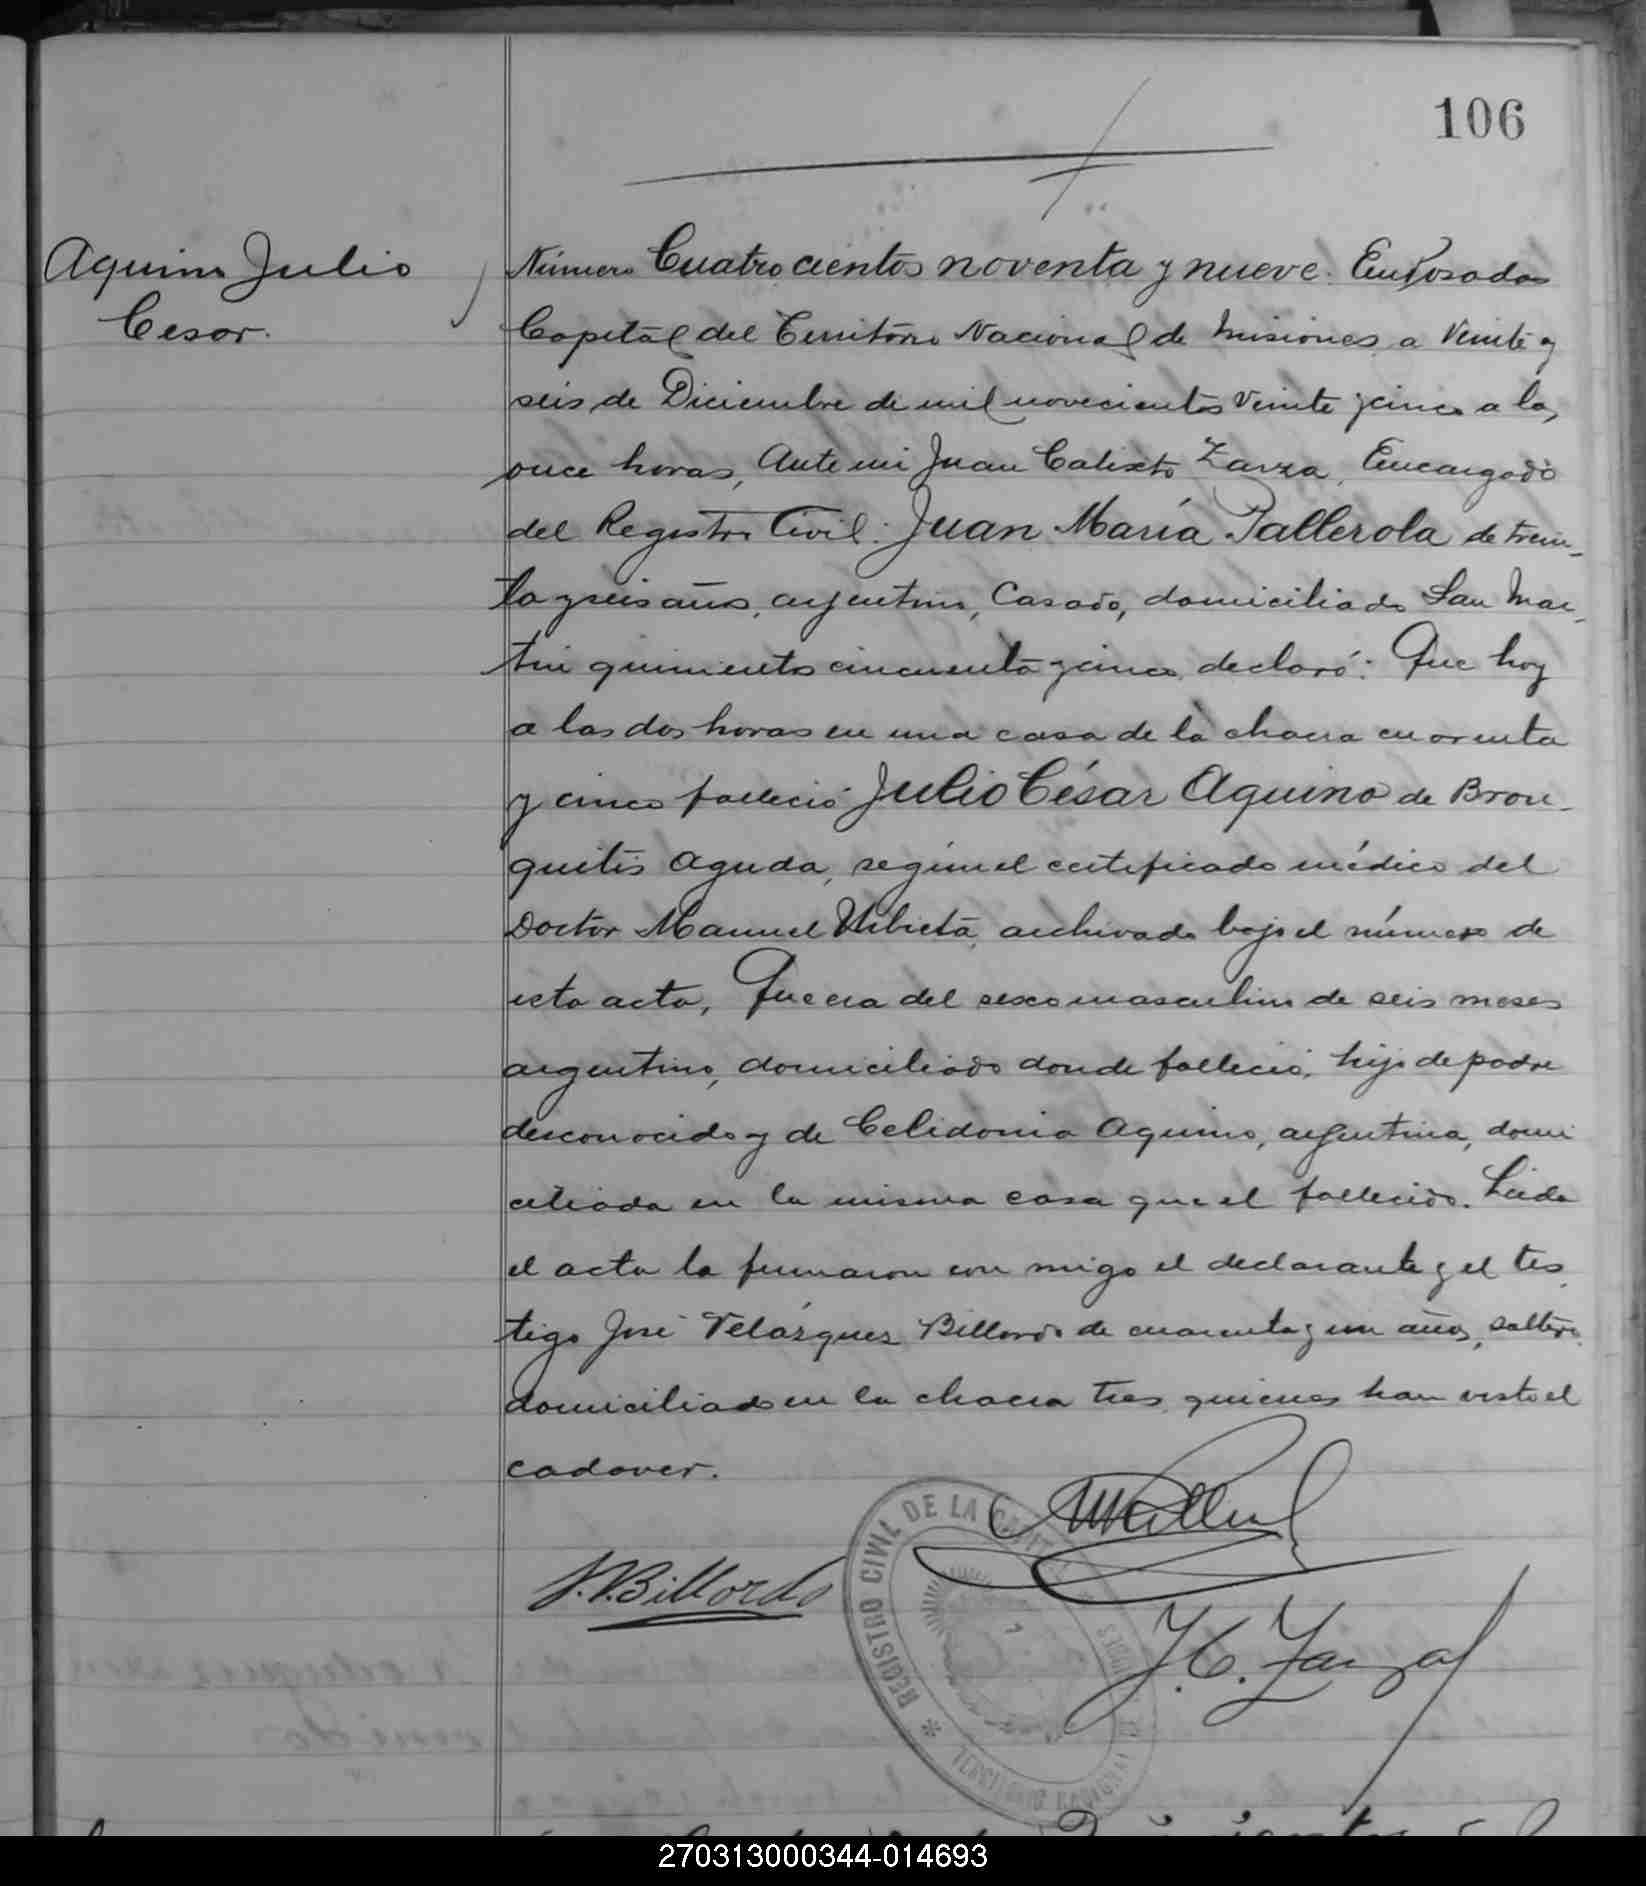 106
Aquino Julio
Cesar.
Número Cuatrocientos noventa y nueve. En Posadas
Capital del Territorio Nacional de Misiones a Veinte y
seis de Diciembre de mil novecientos veinte y cinco a las
once horas, Ante mi Juan Calixto Zarza, Encargado
del Registro Civil: Juan María Pallerola de trein_
ta y seis años, argentino, Casado, domiciliado San Mar_
tin quinientos cincuenta y cinco, declaró: Que hoy
a las dos horas en una casa de la chacra cuarenta
y cinco falleció Julio César Aquino de Bron_
quitis Aguda, según el certificado médico del
Doctor Manuel Urbieta, archivado bajo el número de
esta acta, Que era del sexo masculino de seis meses
argentino, domiciliado donde falleció, hijo de padre
desconocido y de Celidonia Aquino, argentina, domi
ciliada en la misma casa que el fallecido. Leida
el acta la firmaron con migo el declarante y el tes_
tigo José Velázquez Billordo de cuarenta y un años, soltero
domiciliado en la chacra tres, quienes han visto el
cadaver.
REGISTRO CIVIL DE LA CAPITAL
J.V.Billordo
J. C. Zarza
TERRITORIO NACIONAL DE MISIONES
270313000344-014693